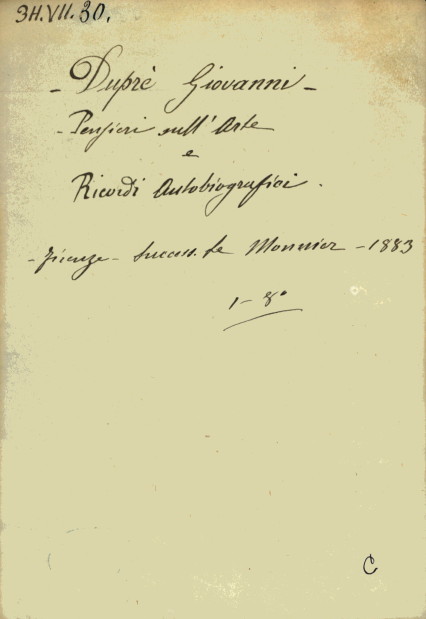 3H.VII.30.
- Duprè Giovanni -
- Pensieri sull'Arte
e
Ricordi Autobiografici.
- Firenze - Success. Le Monnier - 1883
1 - 8°
C